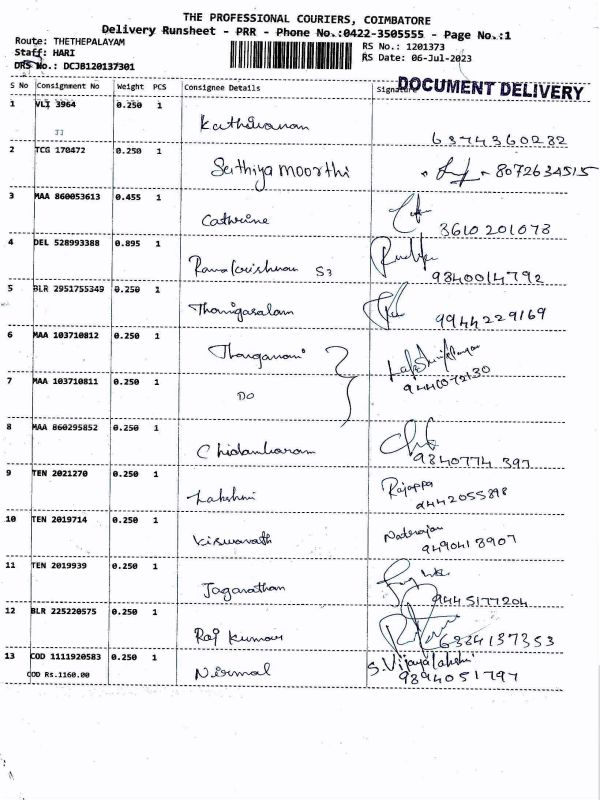 THE PROFESSIONAL COURIERS, COIMBATORE
Delivery Runsheet - PRR - Phone No.:0422-3505555 - Page No.:1
Route: THETHEPALAYAM RS No.: 1201373
Staff: HARI RS Date: 06-Jul-2023
DRS No.: DCJB120137301
DOCUMENT DELIVERY
S No Consignment No Weight PCS Consignee Details Signature
1 VLI 3964 0.250 1 Kathiravanan
JJ 6374360282
2 TCG 170472 0.250 1 Sathiya moorthi 8072634515
3 MAA 860053613 0.455 1 Cathrine 3610201073
4 DEL 528993388 0.895 1 Ramakrishnan S3 9840014792
5 BLR 2951755349 0.250 1 Thanigasalam 9944229169
6 MAA 103710812 0.250 1 Thangamani
7 MAA 103710811 0.250 1 DO 9440072130
8 MAA 860295852 0.250 1 Chidambaram 9840774 397
9 TEN 2021270 0.250 1 Lakshmi Rajappa
9442055898
10 TEN 2019714 0.250 1 Viswanath Natarajan
9490413907
11 TEN 2019939 0.250 1 Jaganathan 9445177204
12 BLR 225220575 0.250 1 Raj kumar 6384137353
13 COD 1111920583 0.250 1 Nirmal S. Vijayalakshmi
COD Rs.1160.00 9894051797